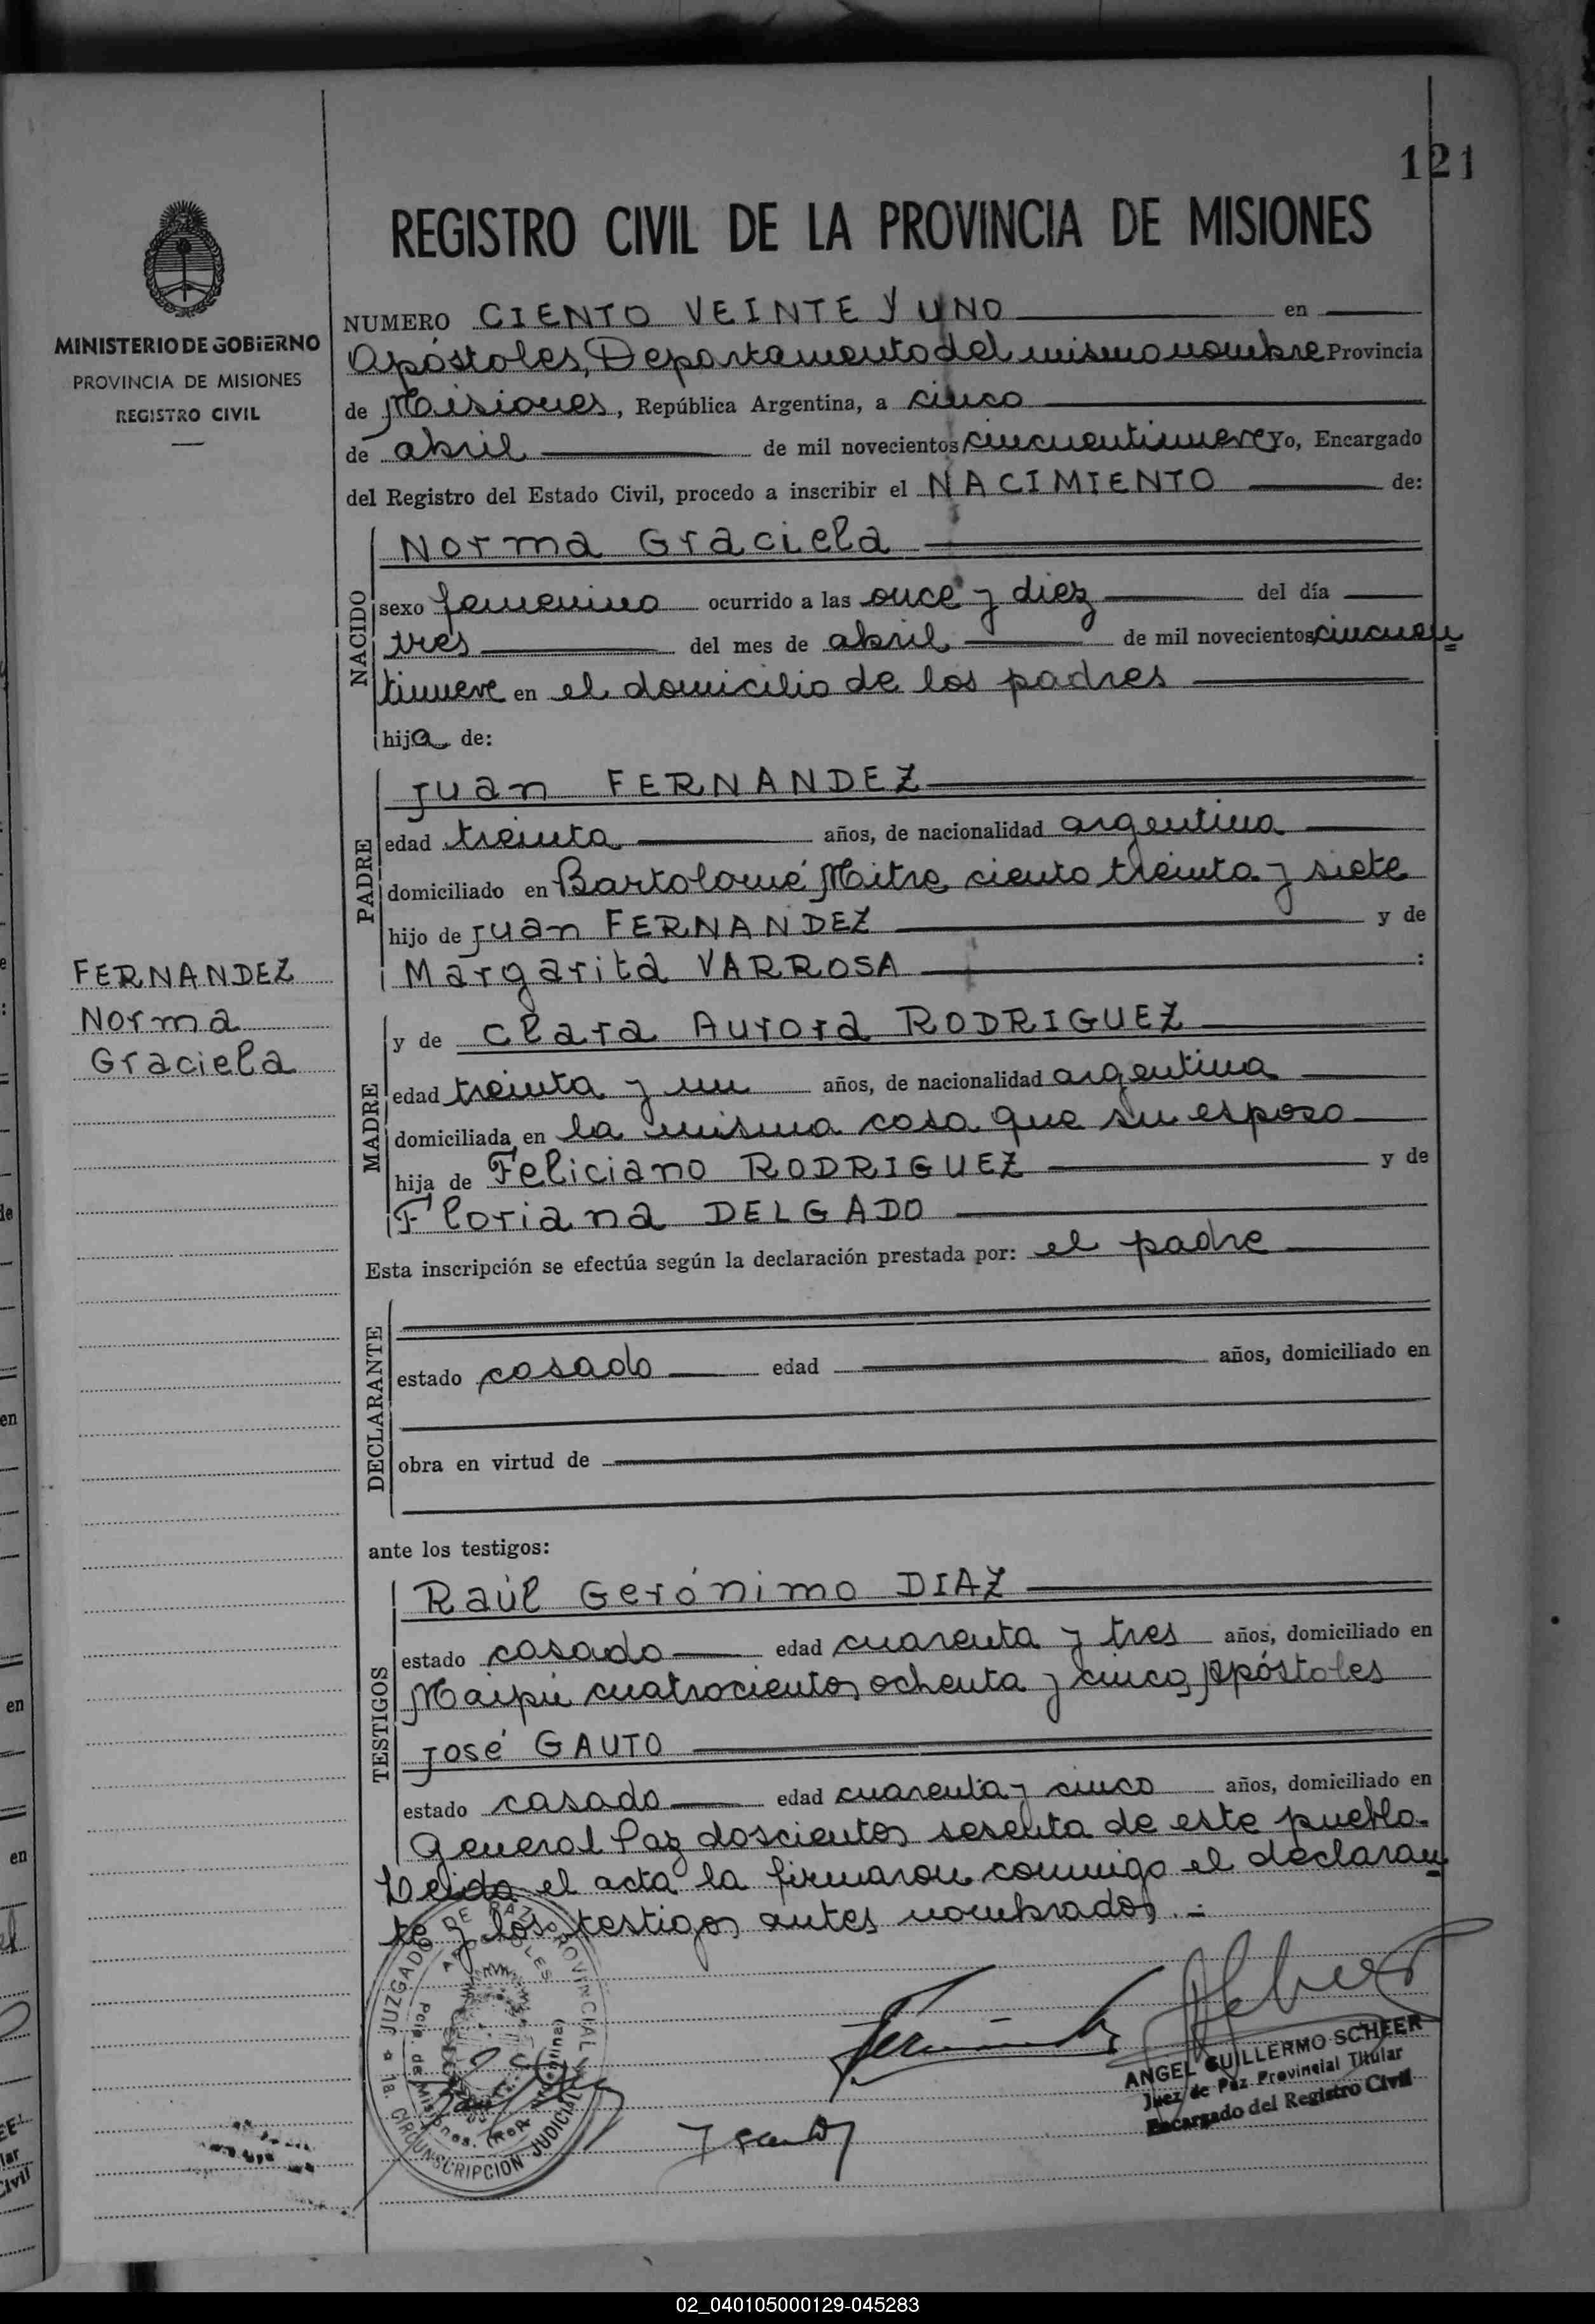 121
REGISTRO CIVIL DE LA PROVINCIA DE MISIONES
MINISTERIO DE GOBIERNO
PROVINCIA DE MISIONES
REGISTRO CIVIL
NUMERO CIENTO VEINTE Y UNO en
Apóstoles, Departamento del mismo nombre Provincia
de Misiones, República Argentina, a cinco
de abril de mil novecientos cincuentinueve Yo, Encargado
del Registro del Estado Civil, procedo a inscribir el NACIMIENTO de:
NACIDO
Norma Graciela
sexo femenino ocurrido a las once y diez del día
tres del mes de abril de mil novecientos cincuen
tinueve en el domicilio de los padres
hija de:
PADRE
Juan FERNANDEZ
edad treinta años, de nacionalidad argentina
domiciliado en Bartolomé Mitre ciento treinta y siete
hijo de Juan FERNANDEZ y de
Margarita VARROSA :
FERNANDEZ
Norma
Graciela
MADRE
y de Clara Aurora RODRIGUEZ
edad treinta y un años, de nacionalidad argentina
domiciliada en la misma casa que su esposo
hija de Feliciano RODRIGUEZ y de
Floriana DELGADO
Esta inscripción se efectúa según la declaración prestada por: el padre
DECLARANTE
estado casado edad años, domiciliado en
obra en virtud de
ante los testigos:
TESTIGOS
Raúl Gerónimo DIAZ
estado casado edad cuarenta y tres años, domiciliado en
Maipú cuatrocientos ochenta y cinco, Apóstoles
José GAUTO
estado casado edad cuarenta y cinco años, domiciliado en
General Paz doscientos sesenta de este pueblo.
Leída el acta la firmaron conmigo el declaran
te y los testigos antes nombrados.-
JUZGADO DE PAZ PROVINCIAL
APOSTOLES
Pcia. de Misiones. (Rep. Argentina)
1a. CIRCUNSCRIPCION JUDICIAL
ANGEL GUILLERMO SCHEER
Juez de Paz Provincial Titular
Encargado del Registro Civil
02_040105000129-045283